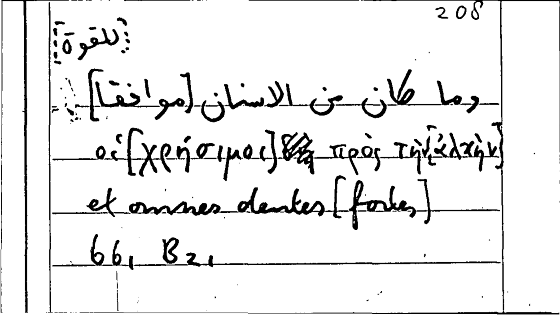 208
[للقوة]
وما كان من الاسنان [موافقا]
οἱ [χρήσιμοι] πρὸς τὴν [ἀλκὴν]
et omnes dentes [fortes]
661 B2,